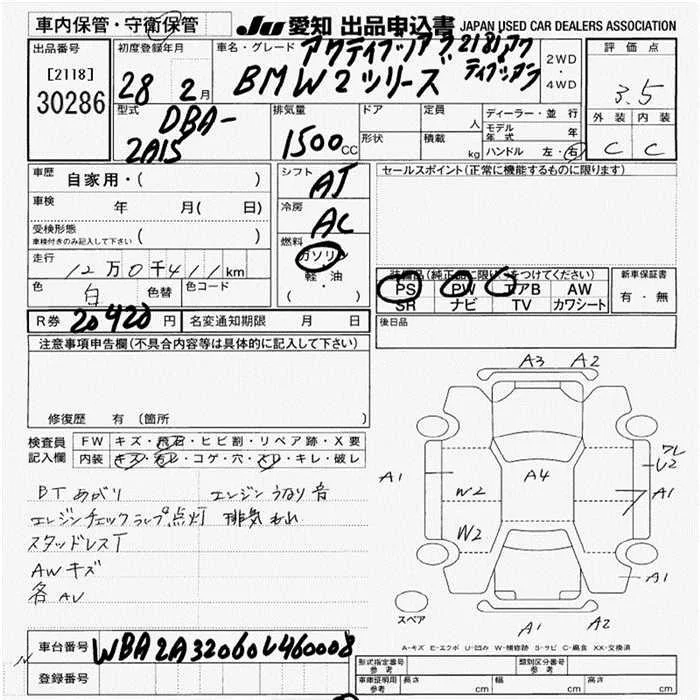 車内保管・守衛保管
JU 愛知 出品申込書 JAPAN USED CAR DEALERS ASSOCIATION
出品番号
[2118]
30286
初度登録年月
28 2月
車名・グレード アクティブツアラ 218iアク
ティブツアラ
BMW2シリーズ
2WD
・
4WD
評価点
3.5
外装 内装
C C
型式
DBA-
2A15
排気量
1500cc
ドア
形状
定員
人
積載
kg
ディーラー・並行
モデル年式 年
ハンドル 左・右
車歴
自家用・( )
車検
年 月( 日)
受検形態
車検付きのみ記入して下さい ( )
走行
12万0千411km
色 白 色替 色コード
シフト AT
冷房 AC
燃料
ガソリン
軽・油
( ・ )
セールスポイント(正常に機能するものに限ります)
装備品(純正品に限り○をつけてください)
PS PW エアB AW
SR ナビ TV カワシート
新車保証書
有・無
後日品
R券 20420円 名変通知期限 月 日
注意事項申告欄(不具合内容等は具体的に記入して下さい)
修復歴 有 (箇所 )
検査員
記入欄
FW キズ・飛石・ヒビ割・リペア跡・X要
内装 キズ・汚レ・コゲ・穴・スレ・キレ・破レ
BTあがり エンジンうなり音
エンジンチェックランプ点灯 排気もれ
スタッドレスT
AWキズ
各AU
A3 A2
A1
A4
ワレ
U2
A1
W2
W2
A1
A1 A2
スペア
A-キズ E-エクボ U-凹み W-補修跡 S-サビ C-腐食 XX-交換済
車台番号 WBA2A32060V460008
登録番号
形式指定番号
参考
類別区分番号
参考
車庫証明用
参考
長さ cm 幅 cm 高さ cm